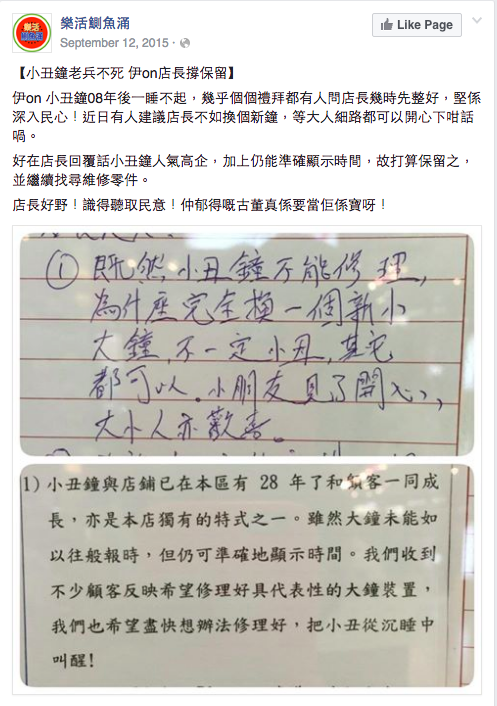 樂活
鰂魚涌
樂活鰂魚涌
September 12, 2015 ·
Like Page
【小丑鐘老兵不死 伊on店長撐保留】
伊on 小丑鐘08年後一睡不起，幾乎個個禮拜都有人問店長幾時先整好，堅係
深入民心！近日有人建議店長不如換個新鐘，等大人細路都可以開心下咁話
喎。
好在店長回覆話小丑鐘人氣高企，加上仍能準確顯示時間，故打算保留之，
並繼續找尋維修零件。
店長好野！識得聽取民意！仲郁得嘅古董真係要當佢係寶呀！
① 既然小丑鐘不能修理,
為什座完全換一個新小
大鐘,不一定小丑,其它
都可以。小朋友見了開心,
大小人亦歡喜。
1) 小丑鐘與店鋪已在本區有 28 年了和顧客一同成
長，亦是本店獨有的特式之一。雖然大鐘未能如
以往般報時，但仍可準確地顯示時間。我們收到
不少顧客反映希望修理好具代表性的大鐘裝置，
我們也希望盡快想辦法修理好，把小丑從沉睡中
叫醒!